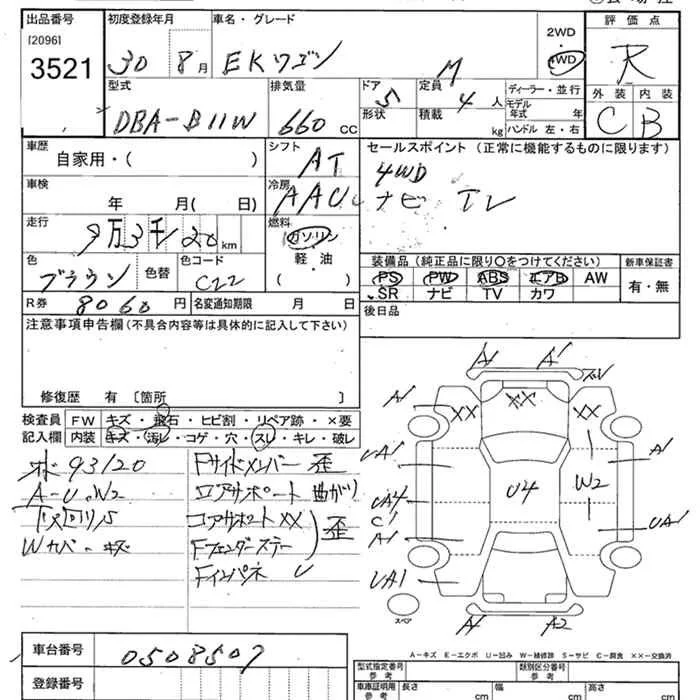 出品番号 初度登録年月 車名・グレード 2WD 4WD 評価点
[2096]
3521
30 8月 EKワゴン M R
型式 排気量 ドア 形状 定員 積載 ディーラー・並行 外装 内装
モデル年式 年
DBA-B11W 660 cc 5 4人 kg ハンドル 左・右 C B
車歴 シフト セールスポイント (正常に機能するものに限ります)
自家用・( ) AT 4WD
車検 冷房 AAC ナビ TV
年 月( 日)
走行 燃料
9万3千120km ガソリン
軽・油
( )
色 色替 色コード 装備品(純正品に限り〇をつけてください) 新車保証書
ブラウン C22 PS PW ABS エアB AW 有・無
SR ナビ TV カワ
R券 8060円 名変通知期限 月 日 後日品
注意事項申告欄(不具合内容等は具体的に記入して下さい)
修復歴 有 〔箇所
検査員 FW キズ・飛石・ヒビ割・リペア跡・×要
記入欄 内装 キズ・汚レ・コゲ・穴・スレ・キレ・破レ
93120 Fサイドメンバー 歪
A-U.W2 ロアサポート 曲がり
下回りS コアサポート XX 歪
Wカバーキズ Fフェンダーステー
Fインパネ U
A1 A1
A1 XX XX XX
UA1 A1
UA4 U4 W2
C1 UA1
A1
UA1
スペア A1 A2
A-キズ E-エクボ U-凹み W-補修跡 S-サビ C-腐食 ××-交換済
車台番号 0508507
登録番号
型式指定番号 参考 類別区分番号 参考
車庫証明用 参考 長さ cm 幅 cm 高さ cm